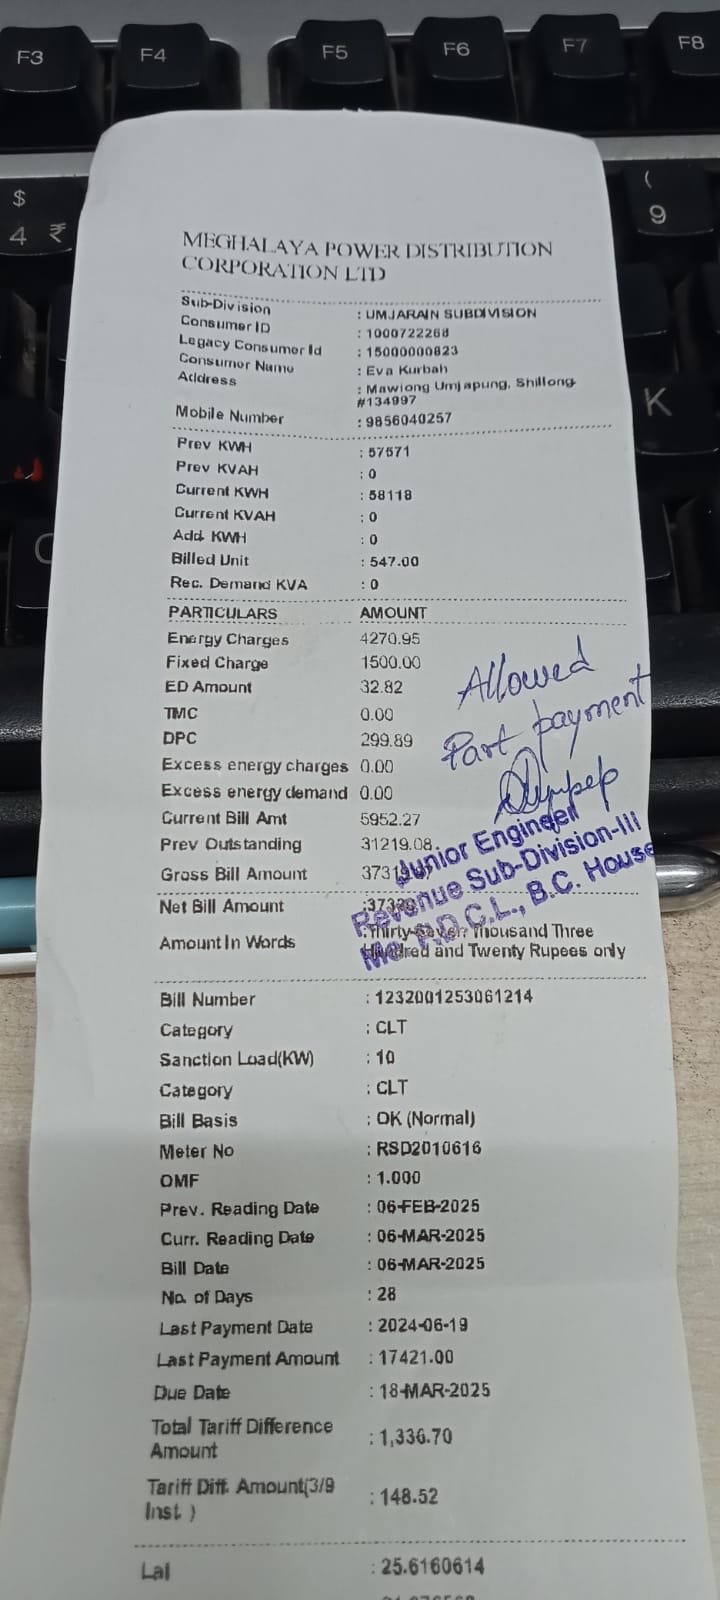 F3 F4 F5 F6 F7 F8
$
4 ₹
(
9
K
MEGHALAYA POWER DISTRIBUTION
CORPORATION LTD
Sub-Division : UMJARAIN SUBDIVISION
Consumer ID : 1000722268
Legacy Consumer Id : 15000000823
Consumer Name : Eva Kurbah
Address : Mawiong Umjapung, Shillong
#134997
Mobile Number : 9856040257
Prev KWH : 57571
Prev KVAH : 0
Current KWH : 58118
Current KVAH : 0
Add. KWH : 0
Billed Unit : 547.00
Rec. Demand KVA : 0
PARTICULARS AMOUNT
Energy Charges 4270.95
Fixed Charge 1500.00
ED Amount 32.82
TMC 0.00
DPC 299.89
Excess energy charges 0.00
Excess energy demand 0.00
Current Bill Amt 5952.27
Prev Outstanding 31219.08
Gross Bill Amount
Net Bill Amount
Amount In Words : Thirty-Seven Thousand Three
Hundred and Twenty Rupees only
Allowed
Part payment
Junior Engineer
Revenue Sub-Division-III
Me. P.D.C.L., B.C. House
Bill Number : 1232001253061214
Category : CLT
Sanction Load(KW) : 10
Category : CLT
Bill Basis : OK (Normal)
Meter No : RSD2010616
OMF : 1.000
Prev. Reading Date : 06-FEB-2025
Curr. Reading Date : 06-MAR-2025
Bill Date : 06-MAR-2025
No. of Days : 28
Last Payment Date : 2024-06-19
Last Payment Amount : 17421.00
Due Date : 18-MAR-2025
Total Tariff Difference
Amount : 1,336.70
Tariff Diff. Amount(3/9
Inst. ) : 148.52
Lat : 25.6160614